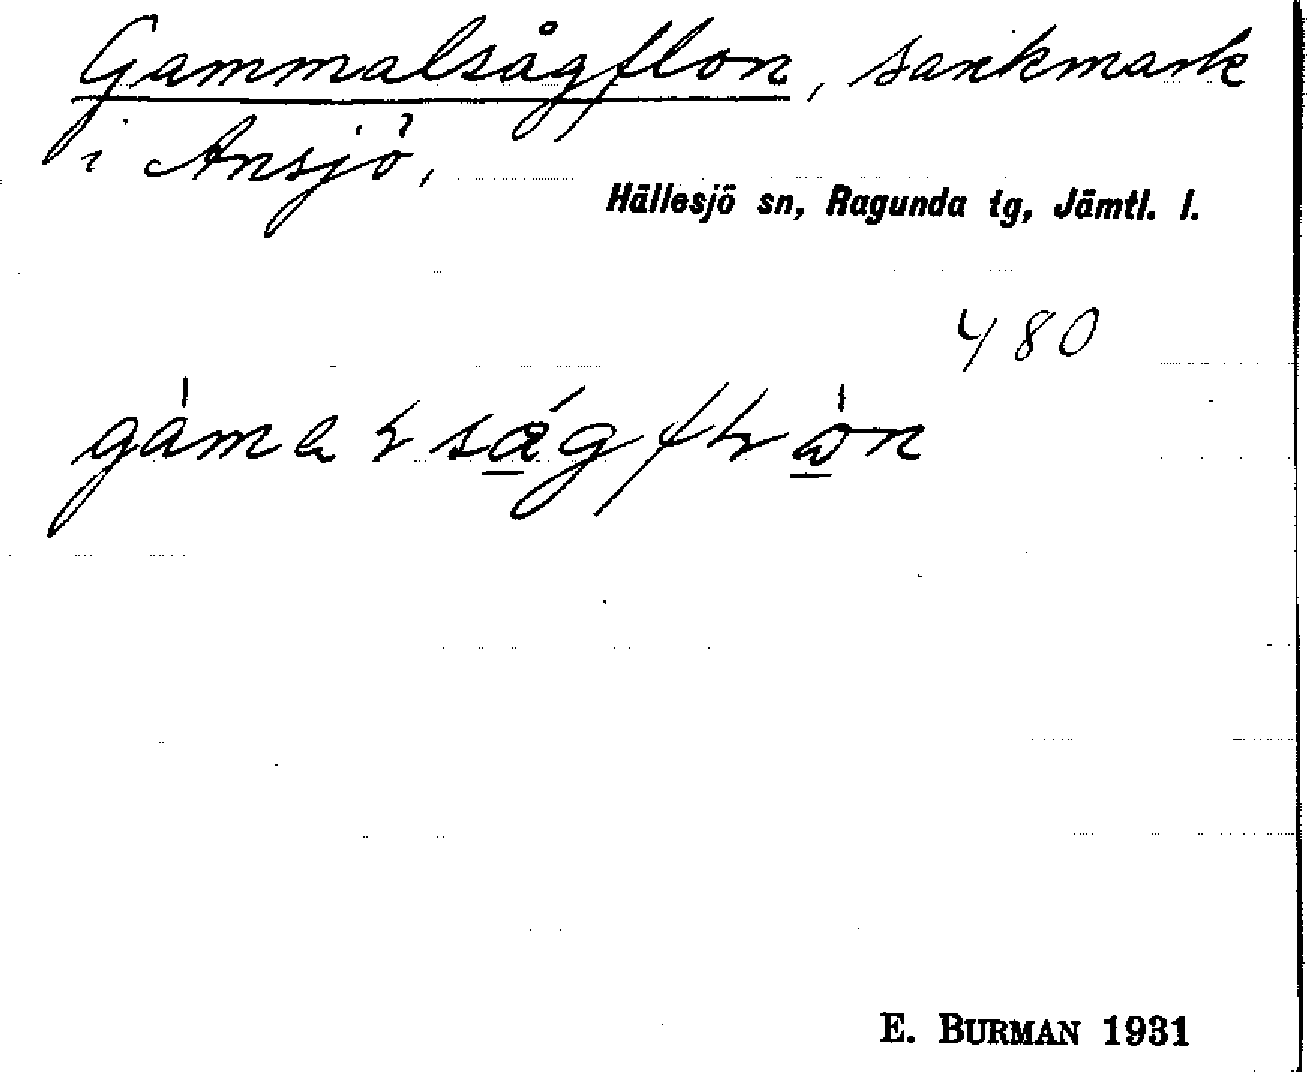 Gammalsågflon, sankmark
i Ansjö,
Hällesjö sn, Ragunda tg, Jämtl. l.
480
E. BURMAN 1931